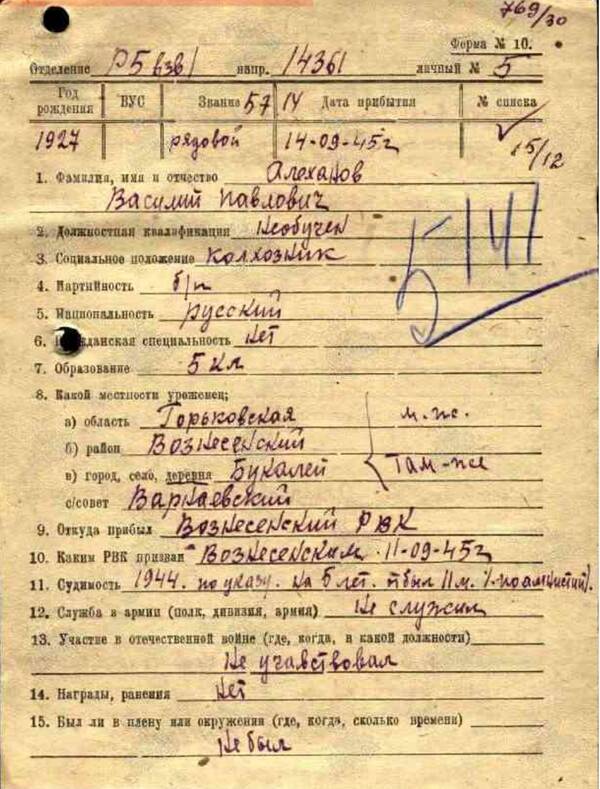 769/30
Форма № 10.
Отделение Р5 взв1 напр. 14361 личный № 5
Год рождения ВУС Звание 57 14 Дата прибытия № списка
1927 рядовой 14-09-45г 15/12
1. Фамилия, имя и отчество Алеханов
Василий Павлович
2. Должностная квалификация необучен
5-141
3. Социальное положение колхозник
4. Партийность б/п
5. Национальность русский
6. Гражданская специальность нет
7. Образование 5 кл
8. Какой местности уроженец;
а) область Горьковская м.ж.
б) район Вознесенский
в) город, село, деревня Букалей там-же
с/совет Варнаевский
9. Откуда прибыл Вознесенский РВК
10. Каким РВК призван Вознесенским 11-09-45г
11. Судимость 1944. по указу. на 5 лет. отбыл 11 м. по амнистии).
12. Служба в армии (полк, дивизия, армия) Не служил
13. Участие в отечественной войне (где, когда, в какой должности)
Не учавствовал
14. Награды, ранения Нет
15. Был ли в плену или окружения (где, когда, сколько времени)
Не был